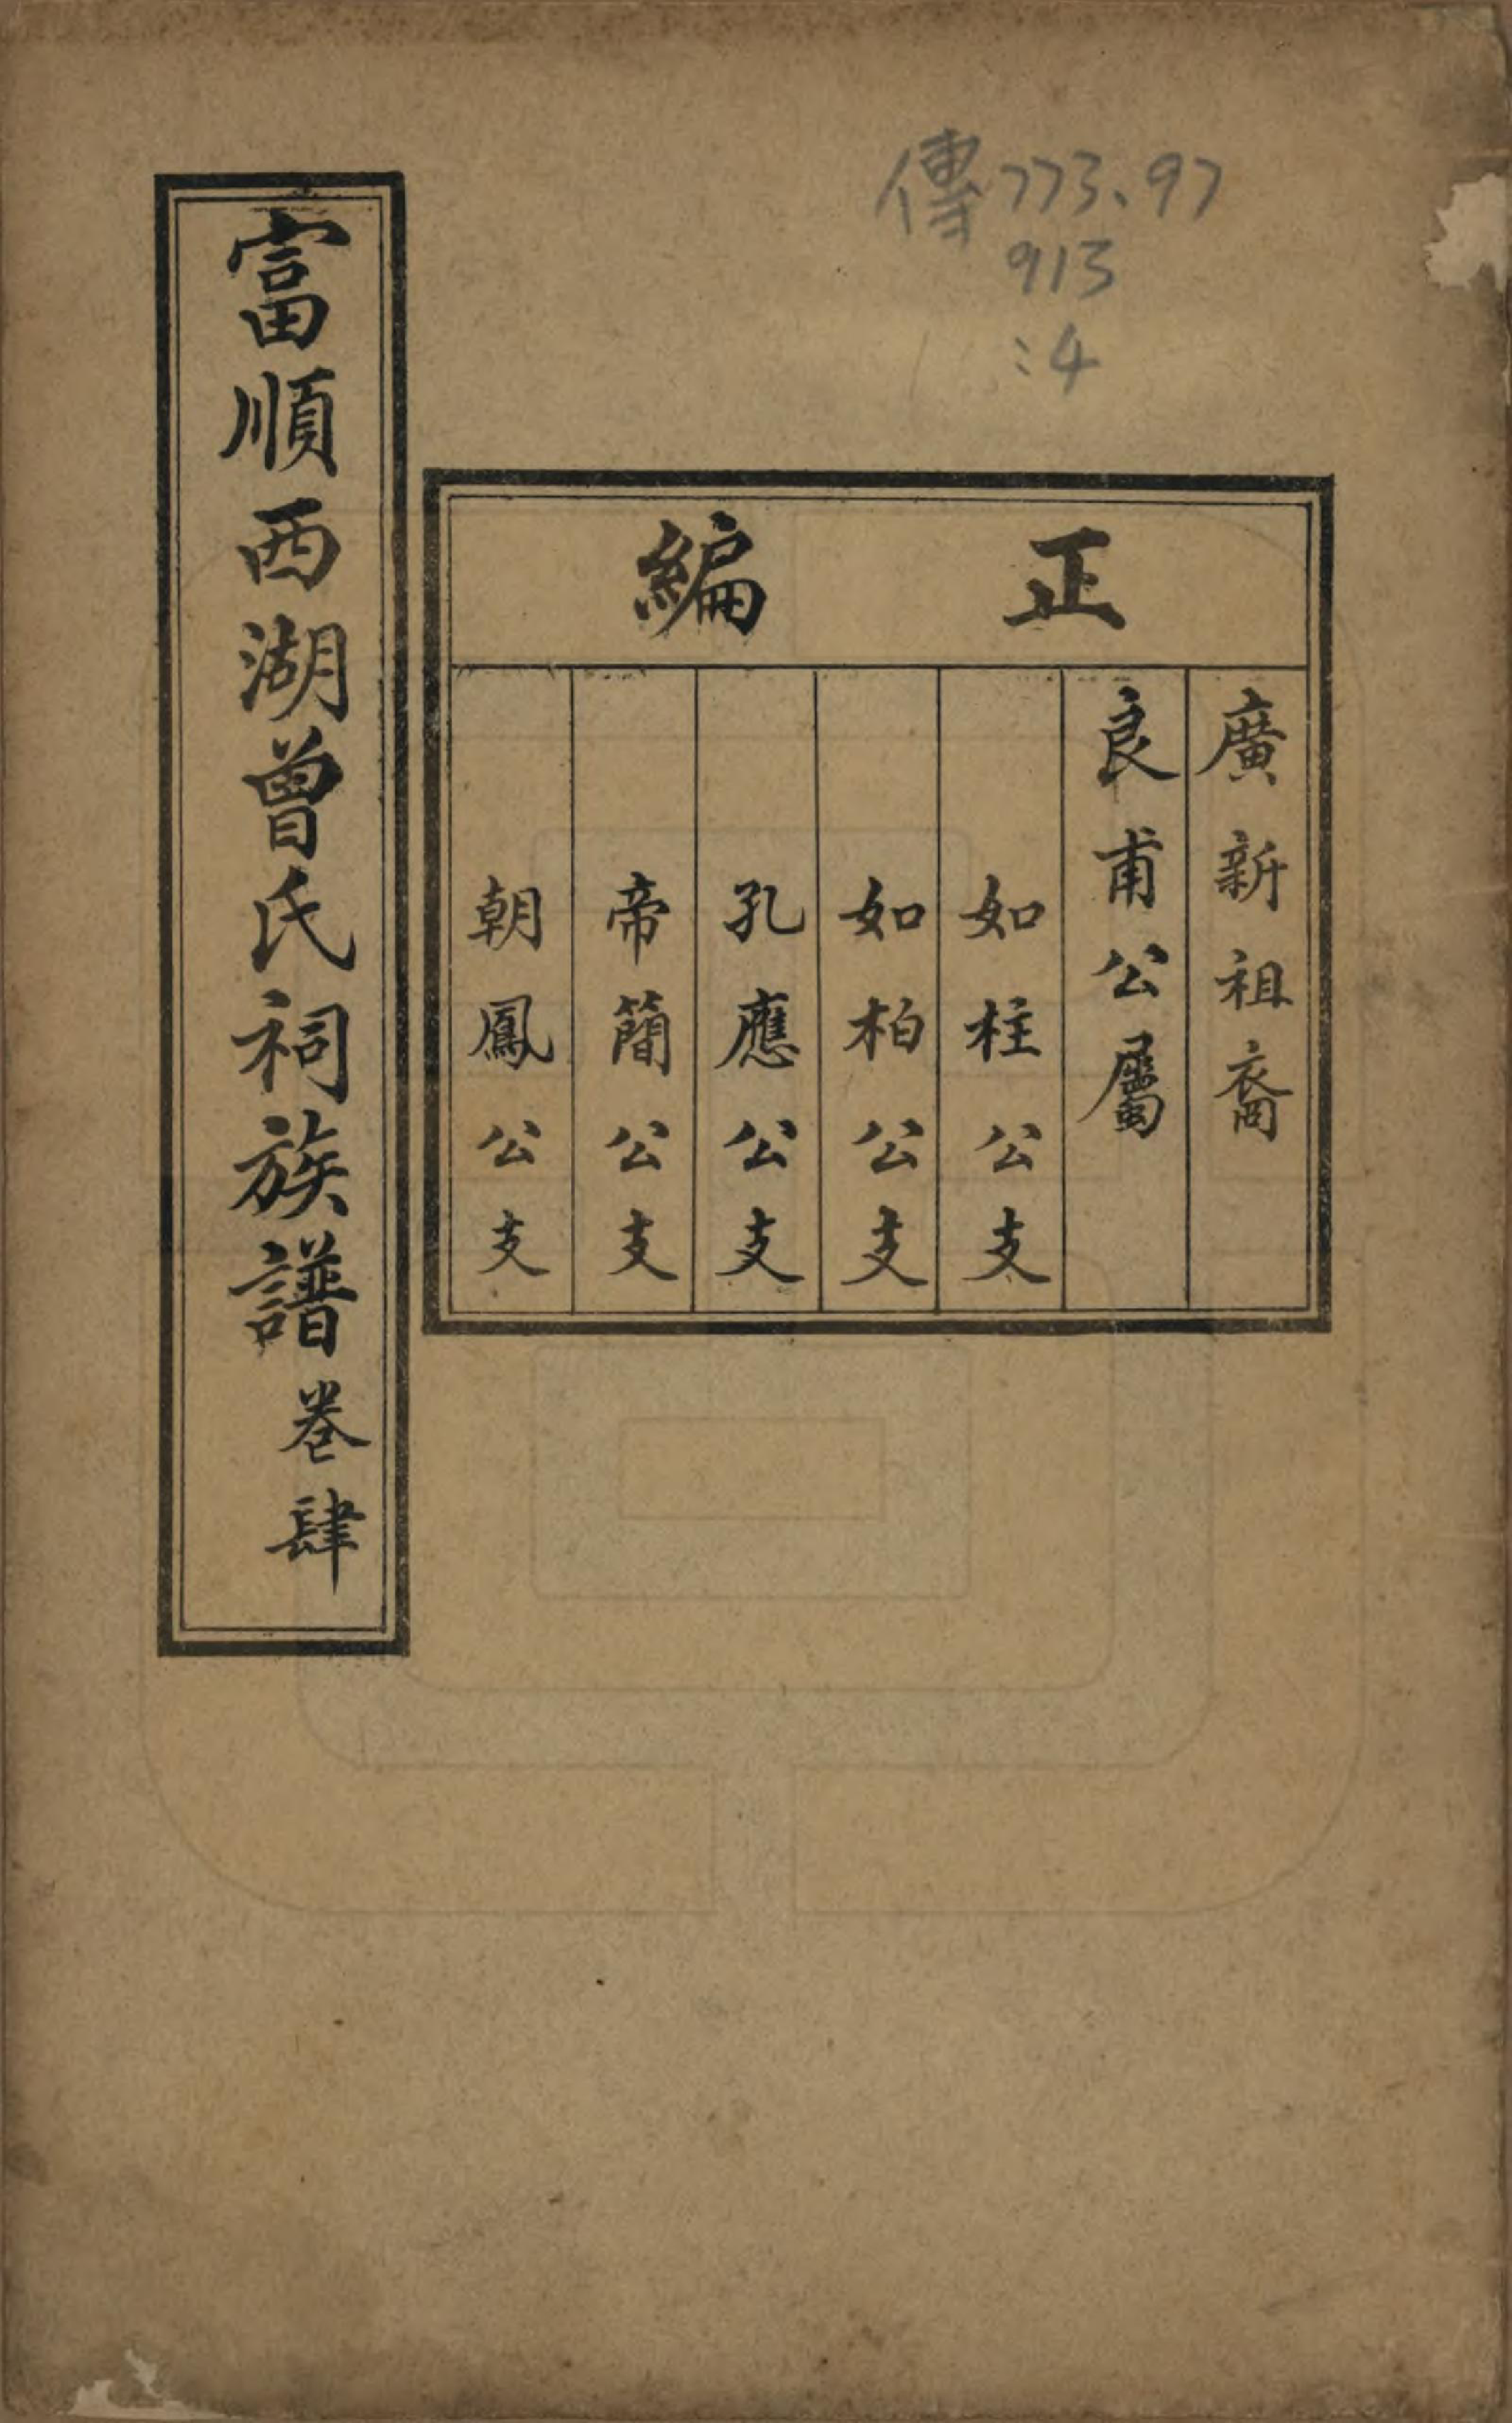 傳773.97
913
:4
正編
廣新祖裔
良甫公屬
如柱公支
如柏公支
孔應公支
帝簡公支
朝鳳公支
富順西湖曾氏祠族譜卷肆